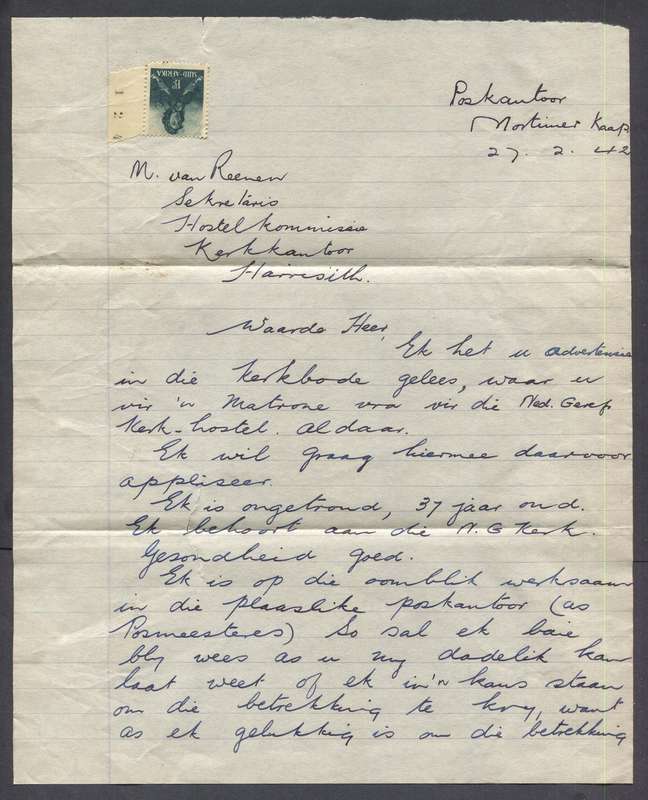 SUID-AFRIKA
Poskantoor
Mortimer Kaap
27. 2. 42
M. van Reenen
Sekretaris
Hostelkommissie
Kerkkantoor
Harrismith.
Waarde Heer,
Ek het u advertensie
in die Kerkbode gelees, waar u
vir 'n Matrone vra vir die Ned. Geref.
Kerk-hostel. aldaar.
Ek wil graag hiermee daarvoor
appliseer.
Ek is ongetroud, 37 jaar oud.
Ek behoort aan die N.G Kerk.
Gesondheid goed.
Ek is op die oomblik werksaam
in die plaaslike poskantoor (as
Posmeesteres) So sal ek baie
bly wees as u my dadelik kan
laat weet of ek in 'n kans staan
om die betrekking te kry, want
as ek gelukkig is om die betrekking